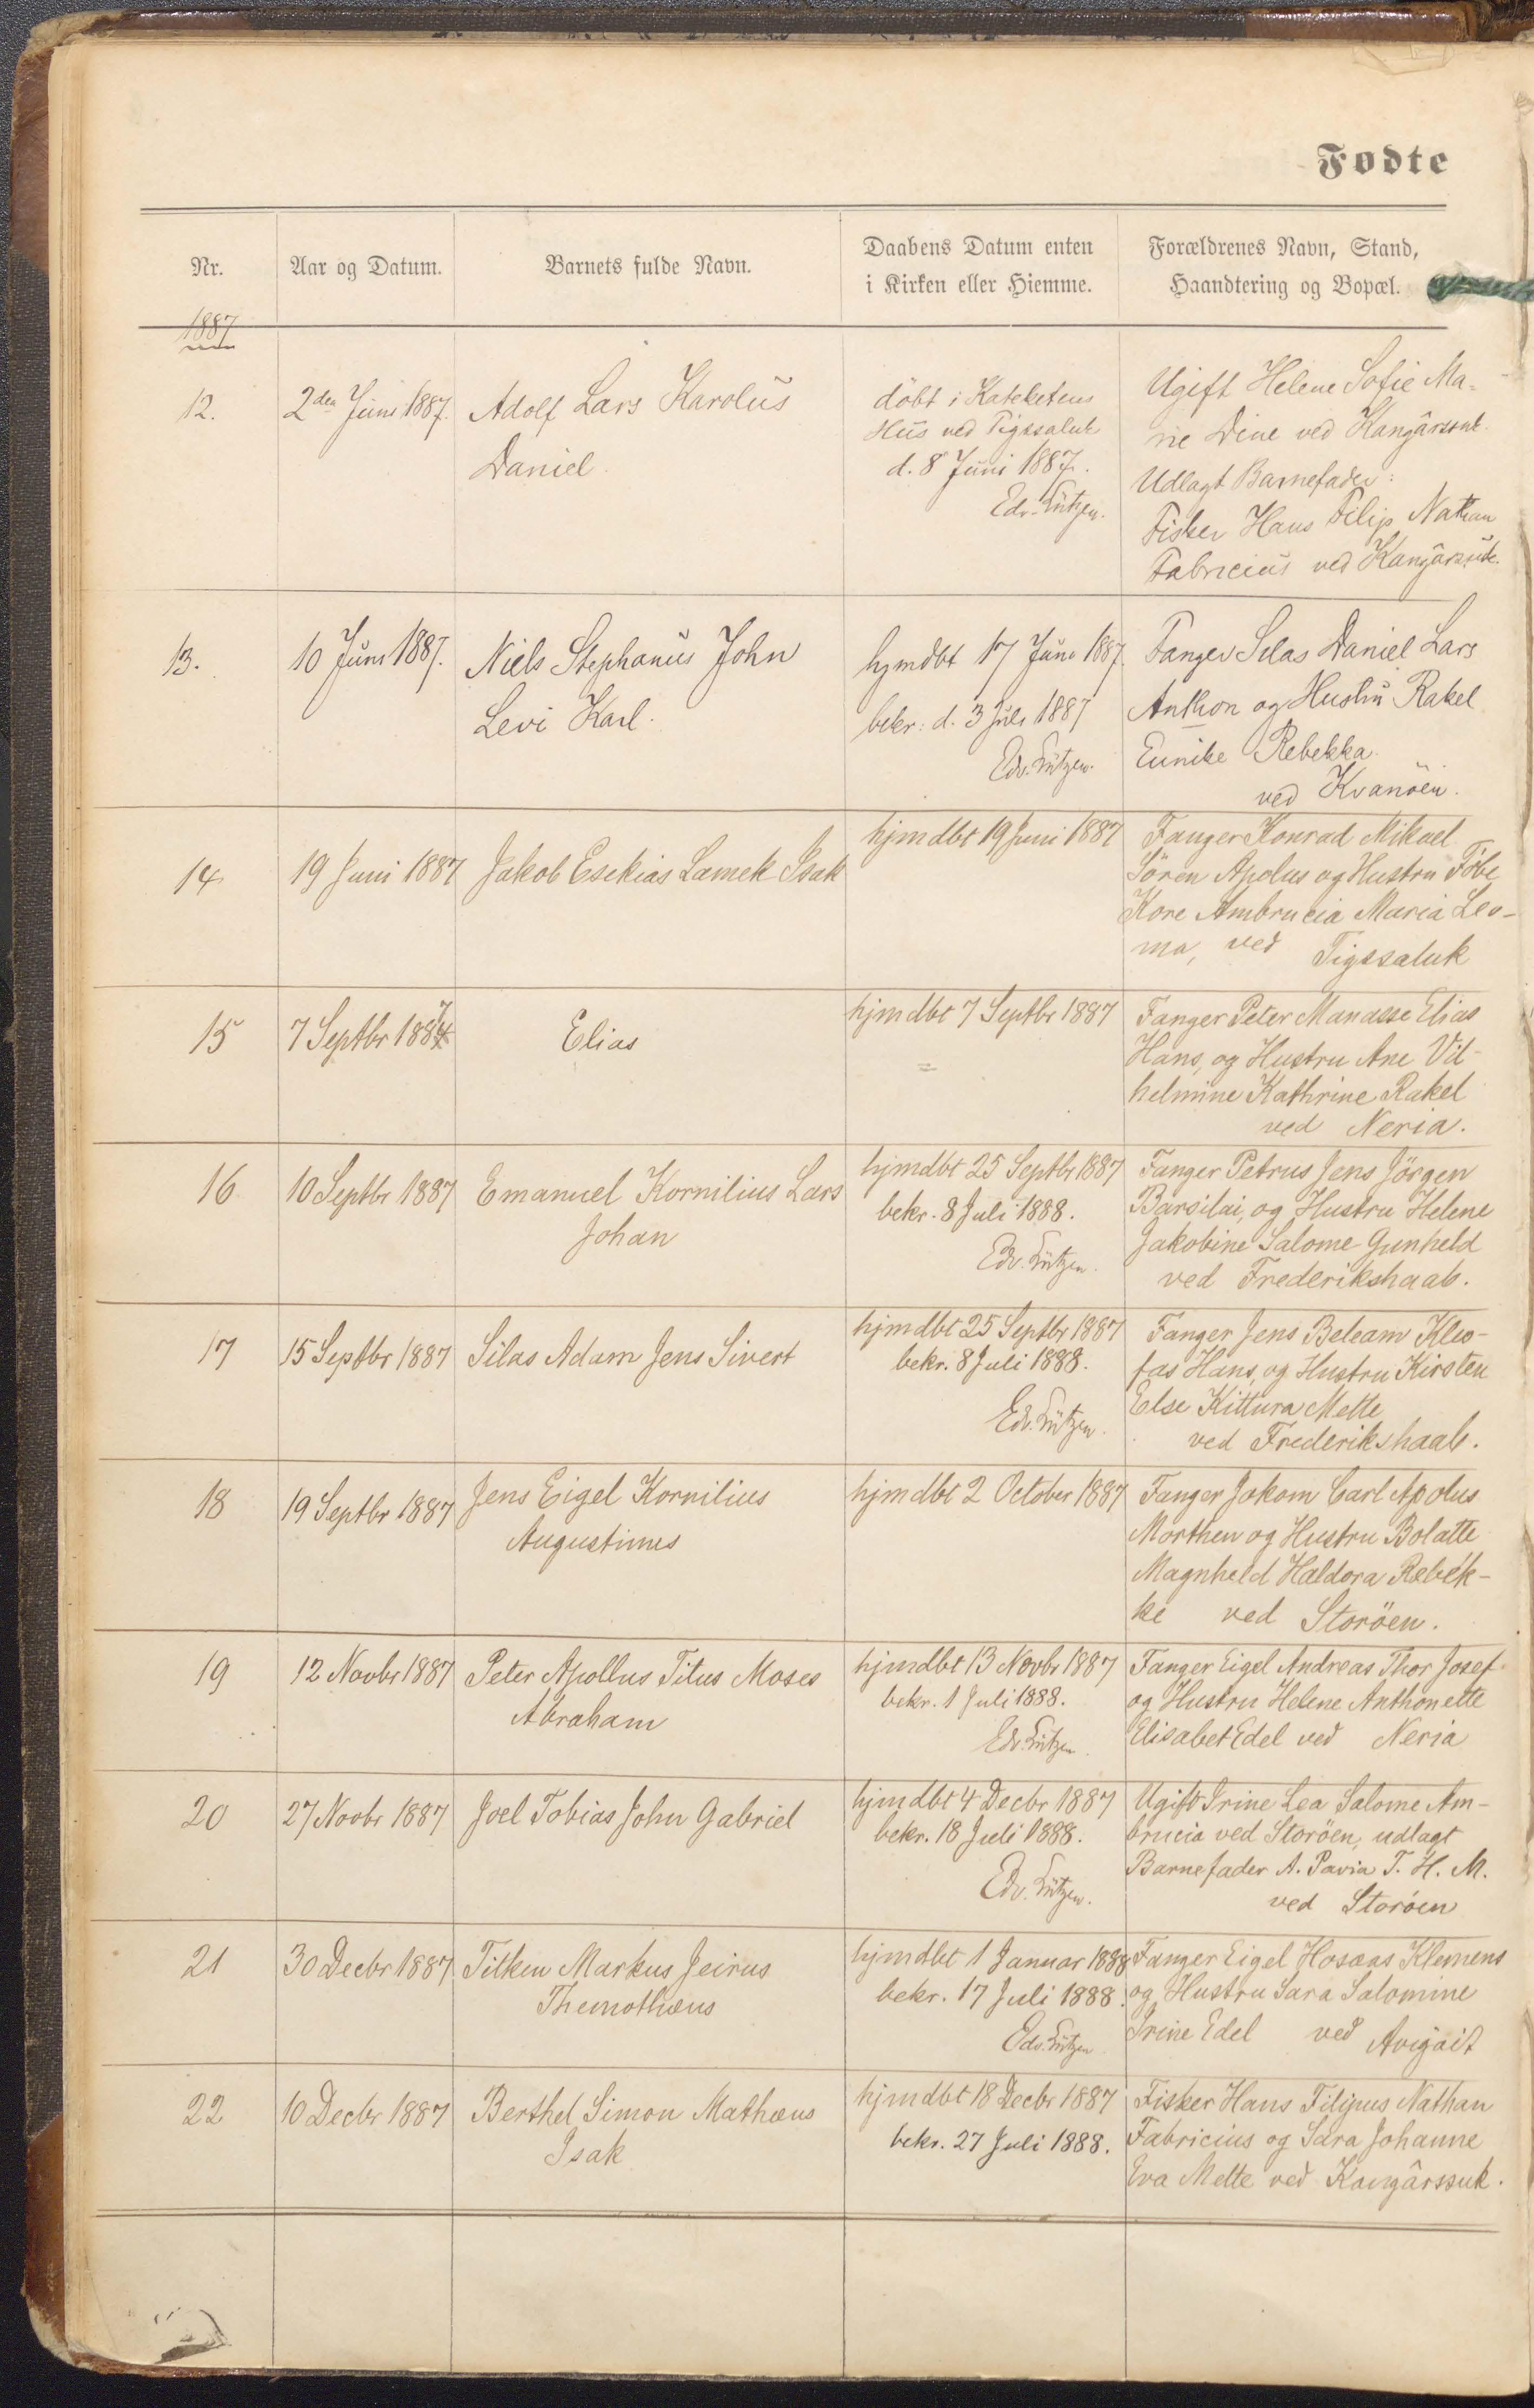 Fødte
Nr.
Aar og Datum.
Barnets fulde Navn.
Daabens Datum enten
i Kirken eller Hiemme.
Forældrenes Navn, Stand,
Haandtering og Bopæl.
1887
12.
2den Juni 1887.
Adolf Lars Karolus
Daniel.
döbt i Kateketens
Hus ved Tigssaluk
d. 8 Juni 1887.
Edv. Lützen.
Ugift Helene Sofie Ma-
rie Dine ved Kangârssuk.
Udlagt Barnefader:
Fisker Hans Filip Nathan
Fabricius ved Kangârssuk.
13.
10 Juni 1887.
Niels Stephanus John
Levi Karl.
hjmdbt 17 Juni 1887.
bekr: d. 3 Juli 1887
Edv. Lützen.
Fanger Silas Daniel Lars
Anthon og Hustru Rakel
Eunike Rebekka.
ved Kvanöen.
14
19 Juni 1887
Jakob Esekias Lamek Isak
hjmdbt 19 Juni 1887
Fanger Konrad Mikael
Sören Apolus og Hustru Föbe
Kore Ambrucia Maria Leo-
ma, ved Tigssaluk
15
7 Septbr 1887
Elias
hjmdbt 7 Septbr 1887
Fanger Peter Manasse Elias
Hans, og Hustru Ane Vil-
helmine Kathrine Rakel
ved Neria.
16
10 Septbr 1887
Emanuel Kornilius Lars
Johan
hjmdbt 25 Septbr 1887
bekr. 8 Juli 1888.
Edv. Lützen.
Fanger Petrus Jens Jörgen
Barsilai, og Hustru Helene
Jakobine Salome Gunheld
ved Frederikshaab.
17
15 Septbr 1887
Silas Adam Jens Sivert
hjmdbt 25 Septbr 1887
bekr. 8 Juli 1888.
Edv. Lützen.
Fanger Jens Beleam Kleo-
fas Hans, og Hustru Kirsten
Else Kittura Mette
ved Frederikshaab.
18
19 Septbr 1887
Jens Eigel Kornilius
Augustinus
hjmdbt 2 October 1887
Fanger Jokom Carl Apolus
Morthen og Hustru Bolatte
Magnheld Haldora Rebek-
ke ved Storöen.
19
12 Novbr 1887
Peter Apollus Titus Moses
Abraham
hjmdbt 13 Novbr 1887
bekr. 1 Juli 1888.
Edv. Lützen.
Fanger Eigel Andreas Thor Josef
og Hustru Helene Anthonette
Elisabet Edel ved Neria
20
27 Novbr 1887
Joel Tobias John Gabriel
hjmdbt 4 Decbr 1887
bekr. 18 Juli 1888.
Edv. Lützen.
Ugift Irine Lea Salome Am-
brucia ved Storöen, udlagt
Barnefader A. Pavia T. H. M.
ved Storöen
21
30 Decbr 1887
Titken Markus Jeirus
Themothæus
hjmdbt 1 Januar 1888
bekr. 17 Juli 1888.
Edv. Lützen
Fanger Eigel Hosæas Klemens
og Hustru Sara Salomine
Irine Edel ved Avigait
22
10 Decbr 1887
Berthel Simon Mathæus
Isak
hjmdbt 18 Decbr 1887
bekr. 27 Juli 1888.
Fisker Hans Filipus Nathan
Fabricius og Sara Johanne
Eva Mette ved Kangârssuk.